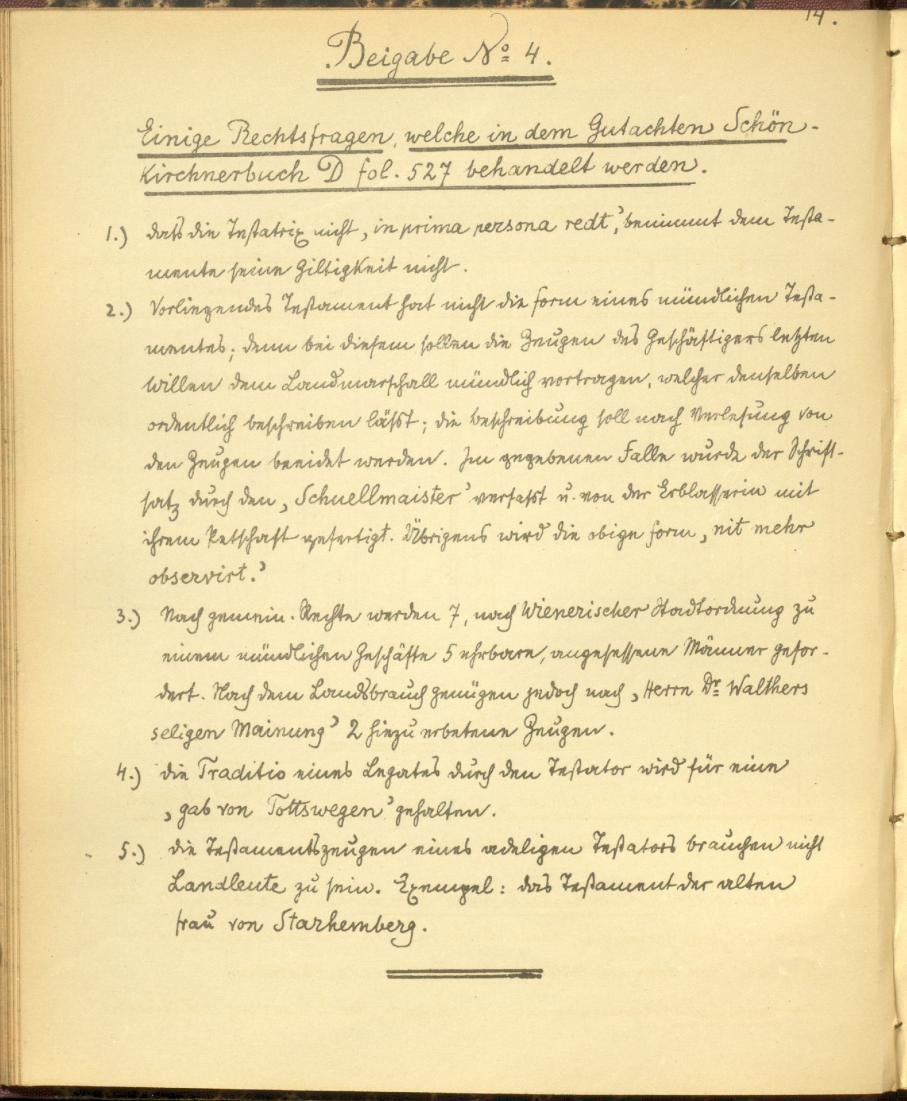 14.
Beigabe Nº 4.
Einige Rechtsfragen, welche in dem Gutachten Schön-
kirchnerbuch D fol. 527 behandelt werden.
1.) dass die Testatrix nicht ‚in prima persona redt’, benimmt dem Testa-
mente seine Giltigkeit nicht.
2.) Vorliegendes Testament hat nicht die Form eines mündlichen Testa-
mentes; denn bei diesem sollen die Zeugen des Geschäftigers letzten
Willen dem Landmarschall mündlich vortragen, welcher denselben
ordentlich beschreiben lässt; die Beschreibung soll nach Verlesung von
den Zeugen beeidet werden. Im gegebenen Falle wurde der Schrift-
satz durch den ‚Schuellmaister’ verfasst u. von der Erblasserin mit
ihrem Petschaft gefertigt. Übrigens wird die obige Form ‚nit mehr
observirt.’
3.) Nach gemein. Rechte werden 7, nach Wienerischer Stadtordnung zu
einem mündlichen Geschäfte 5 ehrbare, angesessene Männer gefor-
dert. Nach dem Landsbrauch genügen jedoch nach ‚Herrn Dr Walthers
seligen Mainung’ 2 hiezu erbetene Zeugen.
4.) die Traditio eines Legates durch den Testator wird für eine
‚gab von Tottswegen’ gehalten.
5.) die Testamentszeugen eines adeligen Testators brauchen nicht
Landleute zu sein. Exempel: das Testament der alten
Frau von Starhemberg.